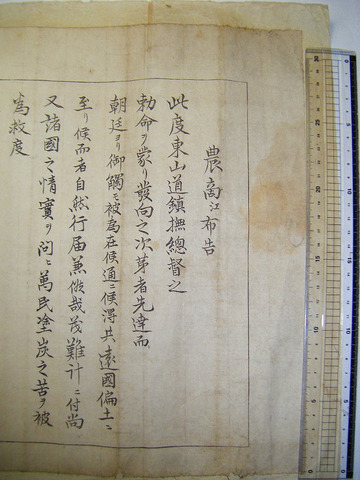 農商江布告
此度東山道鎮撫總督之
勅命ヲ蒙リ發向之次第者先達而
朝廷ヨリ御觸モ被為在候通ニ候得共遠國偏土ニ
至リ候而者自然行届兼候哉茂難計ニ付尚
又諸國之情實ヲ問ヒ萬民塗炭之苦ヲ被
為救度